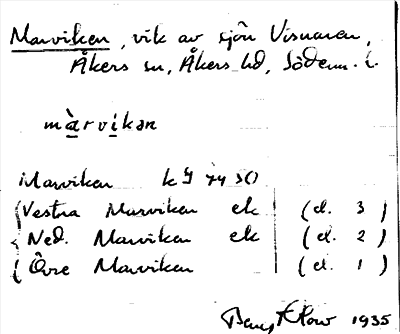 Marviken, vik av sjön Visnaren,
Åkers sn, Åkers hd, Söderm. l.
màrvikən
Marviken kg 74 30
Vestra Marviken ek (d. 3)
Ned. Marviken ek (d. 2)
Övre Marviken (d. 1)
1935